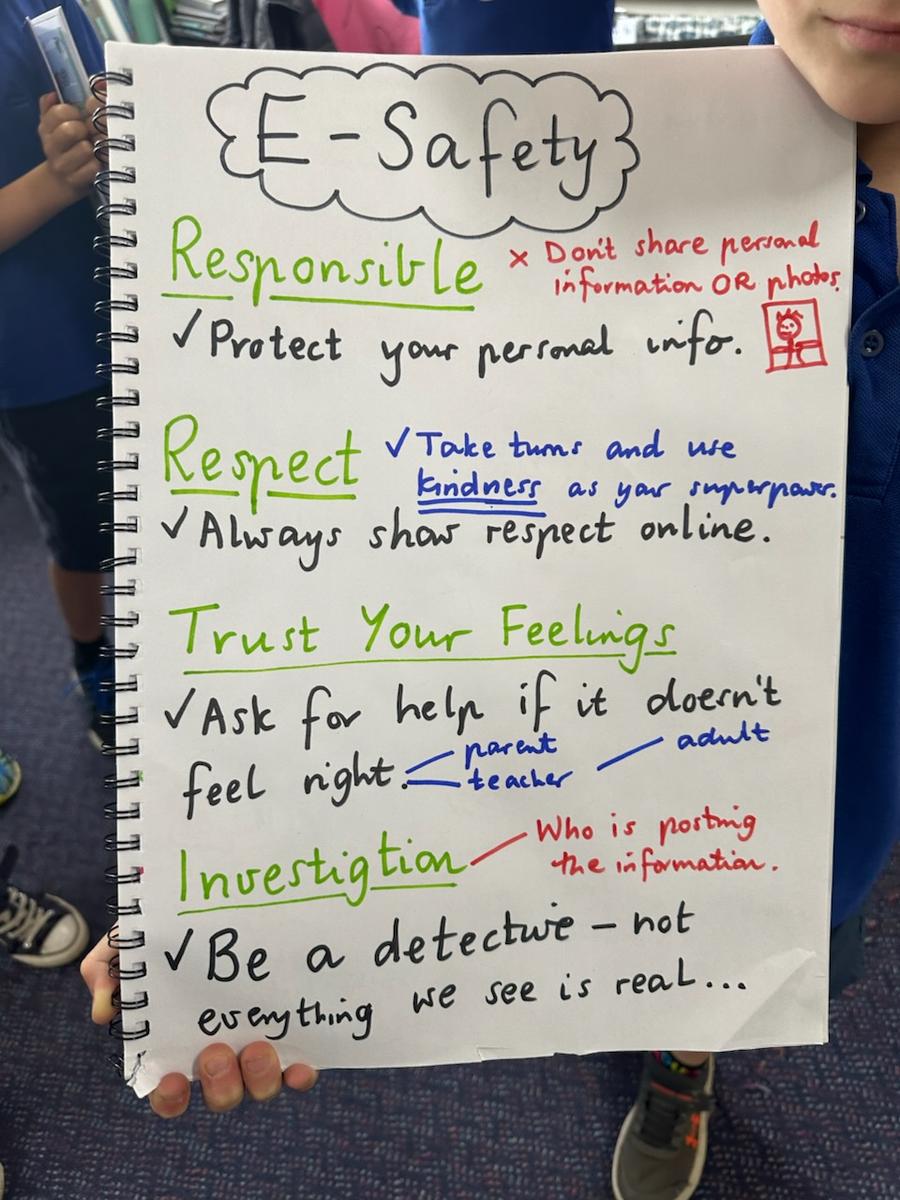 E-Safety
Responsible
× Don't share personal
information OR photos.
✓ Protect your personal info.
Respect
✓ Take turns and use
kindness as your superpower.
✓ Always show respect online.
Trust Your Feelings
✓ Ask for help if it doesn't
feel right.
parent
teacher
adult
Investigtion
Who is posting
the information.
✓ Be a detective – not
everything we see is real...